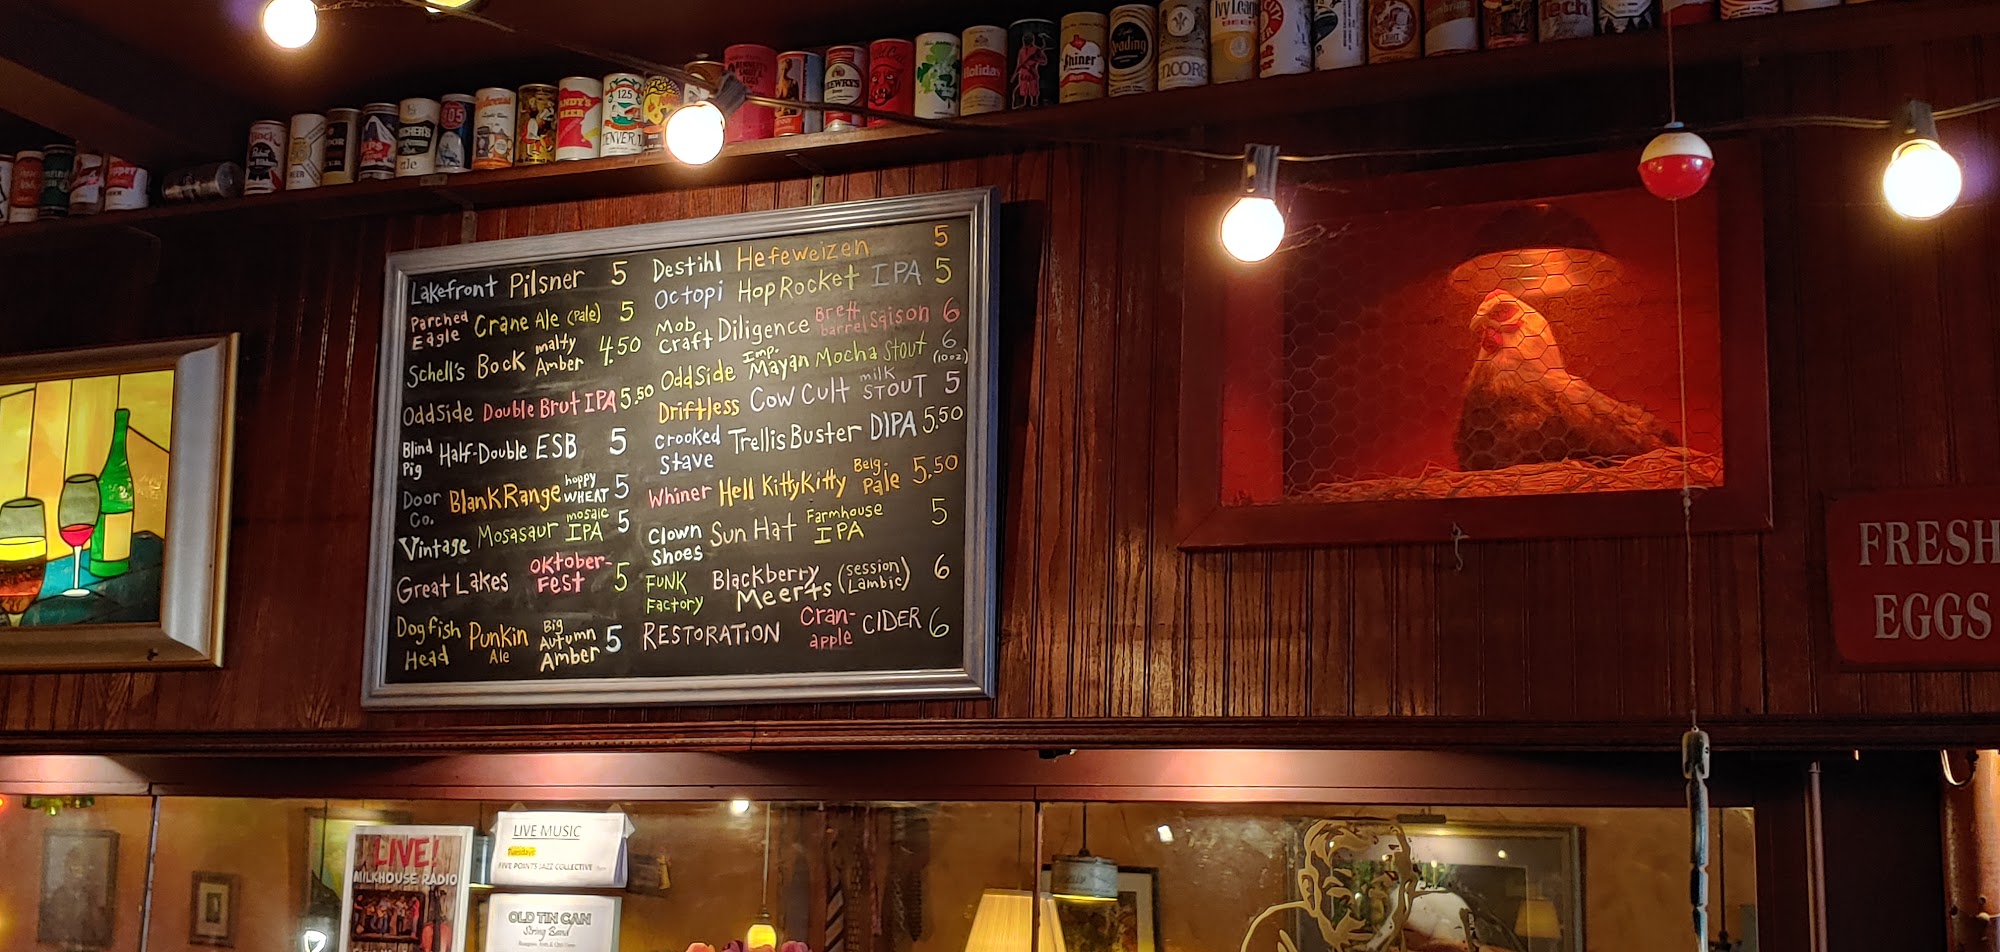 Pabst
BEER
BEER
Ale
905
ANDY'S
BEER
125
DENVER
Holiday
Shiner
Reading
ENCORE
Ivy League
BEER
Tech
Lakefront Pilsner 5
Parched Eagle Crane Ale (Pale) 5
Schell's Bock malty Amber 4.50
OddSide Double Brut IPA 5.50
Blind Pig Half-Double ESB 5
Door Co. Blank Range hoppy WHEAT 5
Vintage Mosasaur mosaic IPA 5
Great Lakes Oktober-Fest 5
Dogfish Head Punkin Ale Big Autumn Amber 5
Destihl Hefeweizen 5
Octopi Hop Rocket IPA 5
Mob Craft Diligence Brett barrel saison 6
OddSide Imp. Mayan Mocha Stout 6 (10oz)
Driftless Cow Cult milk STOUT 5
Crooked Stave Trellis Buster DIPA 5.50
Whiner Hell Kitty Kitty Belg. Pale 5.50
Clown Shoes Sun Hat Farmhouse IPA 5
FUNK Factory Blackberry Meerts (session Lambic) 6
RESTORATION Cran-apple CIDER 6
FRESH
EGGS
LIVE!
MILKHOUSE RADIO
LIVE MUSIC
Tuesdays
FIVE POINTS JAZZ COLLECTIVE
OLD TIN CAN
String Band